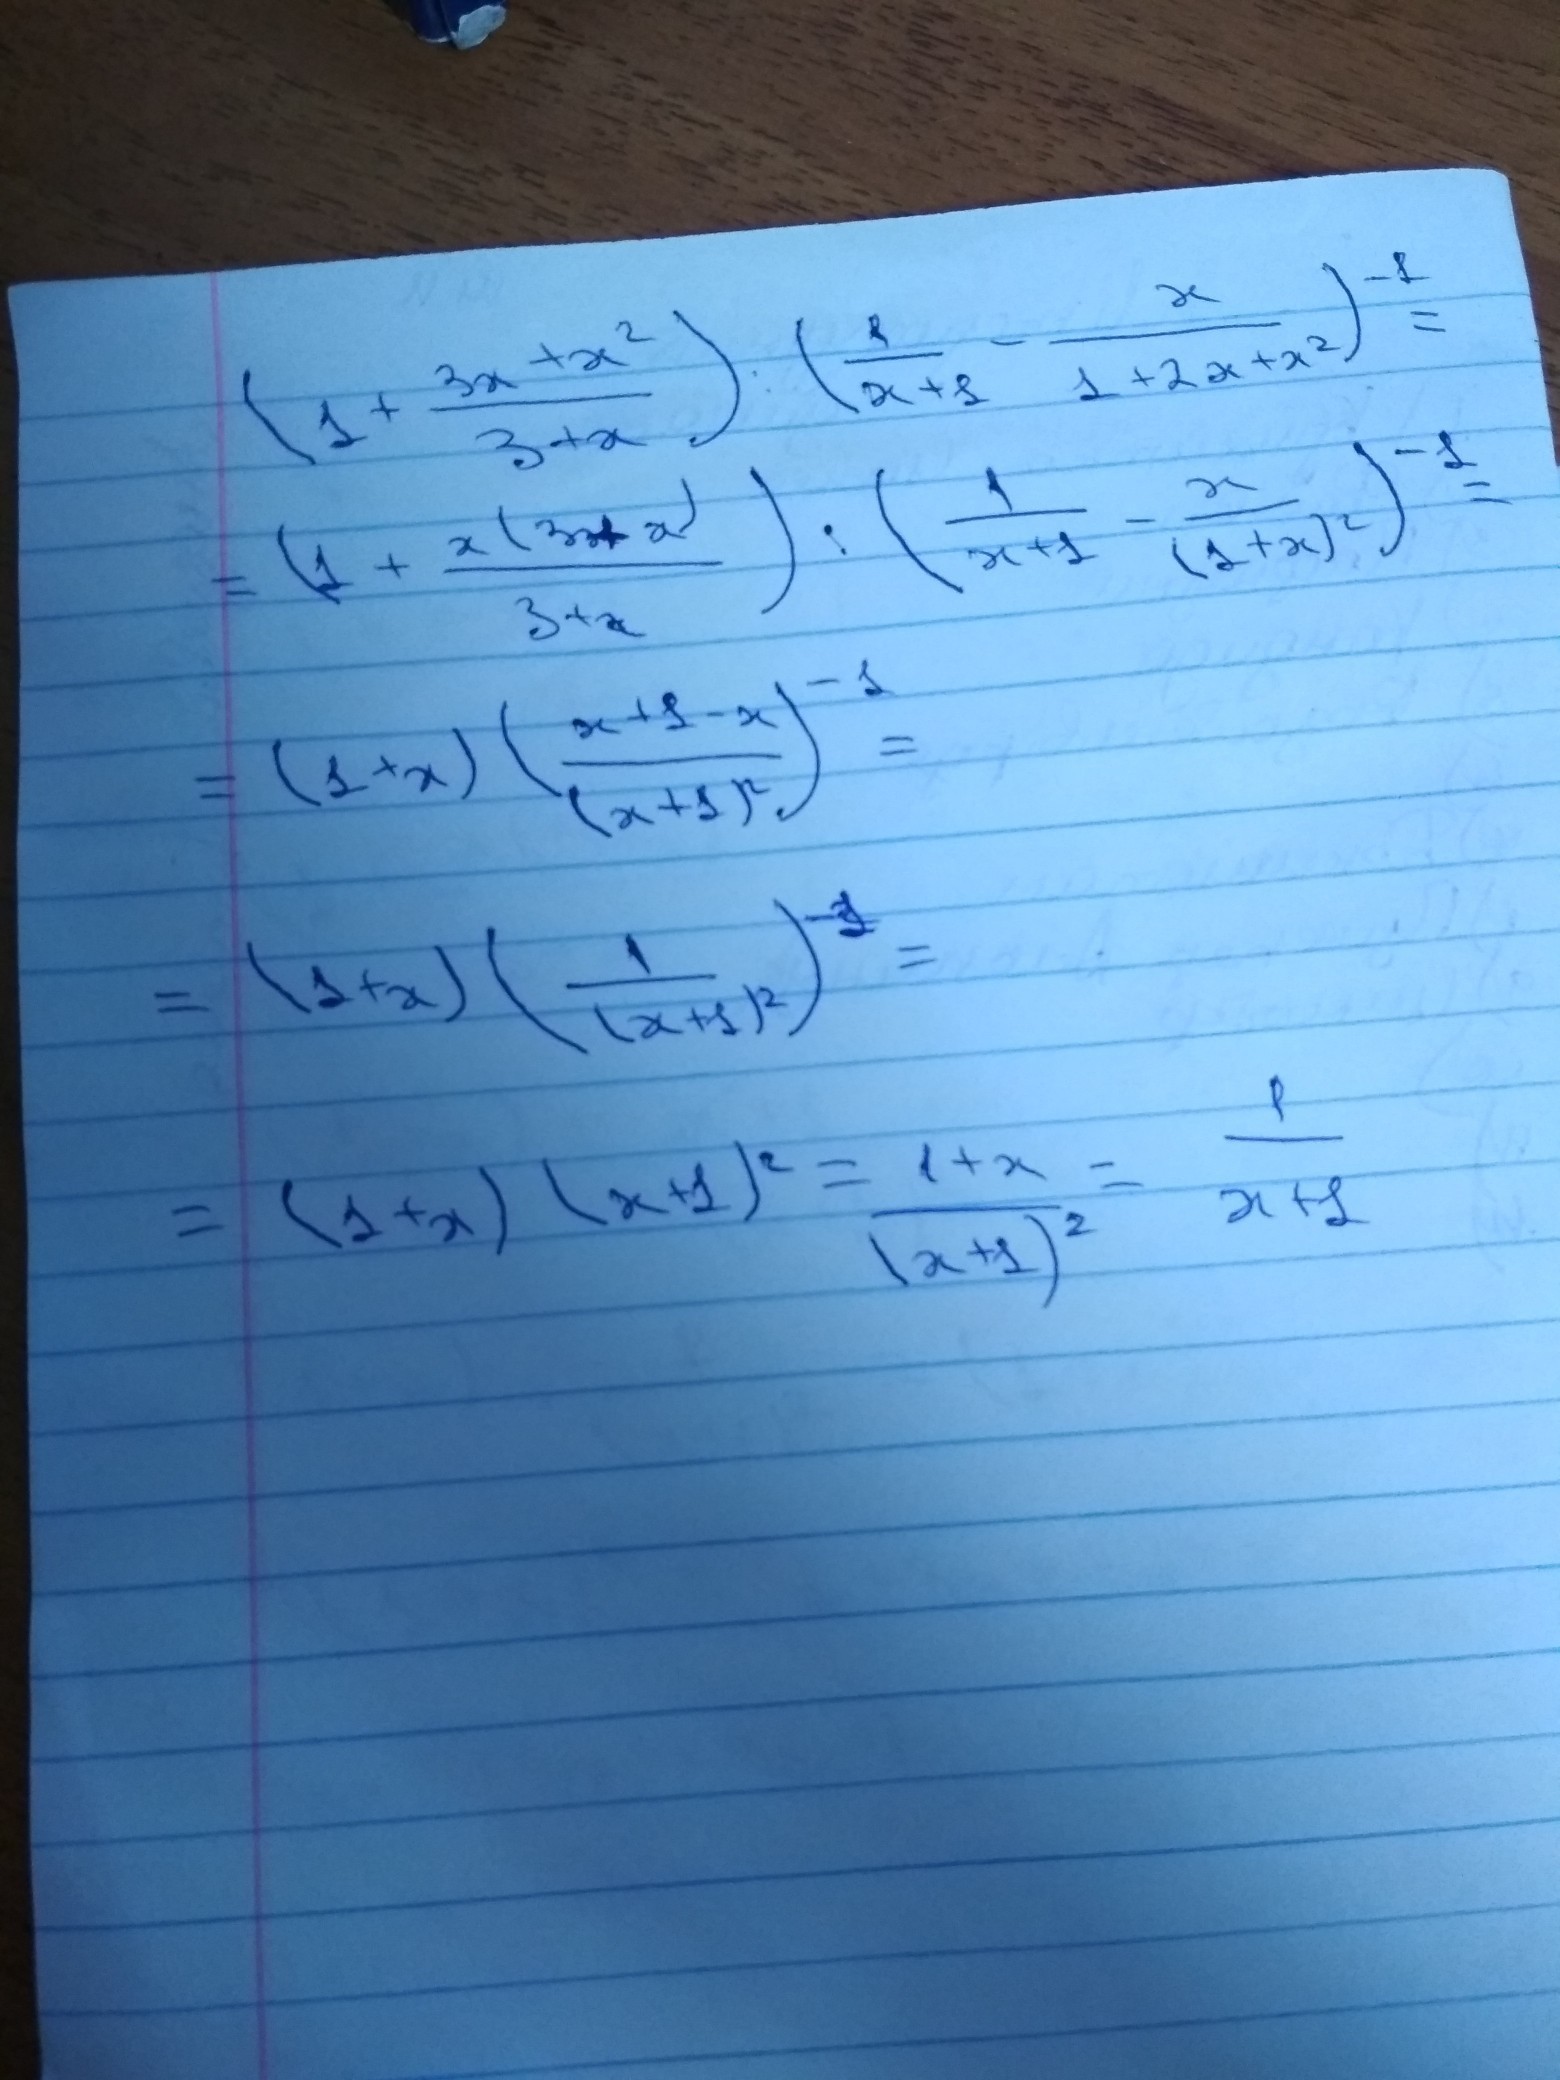 (1 + (3x + x²)/(3 + x)) : (1/(x+1) - x/(1 + 2x + x²))⁻¹ =
= (1 + x(3 + x)/(3 + x)) : (1/(x+1) - x/(1+x)²)⁻¹ =
= (1 + x) ((x + 1 - x)/(x+1)²)⁻¹ =
= (1 + x) (1/(x+1)²)⁻¹ =
= (1 + x) (x+1)² = (1 + x)/(x+1)² = 1/(x+1)